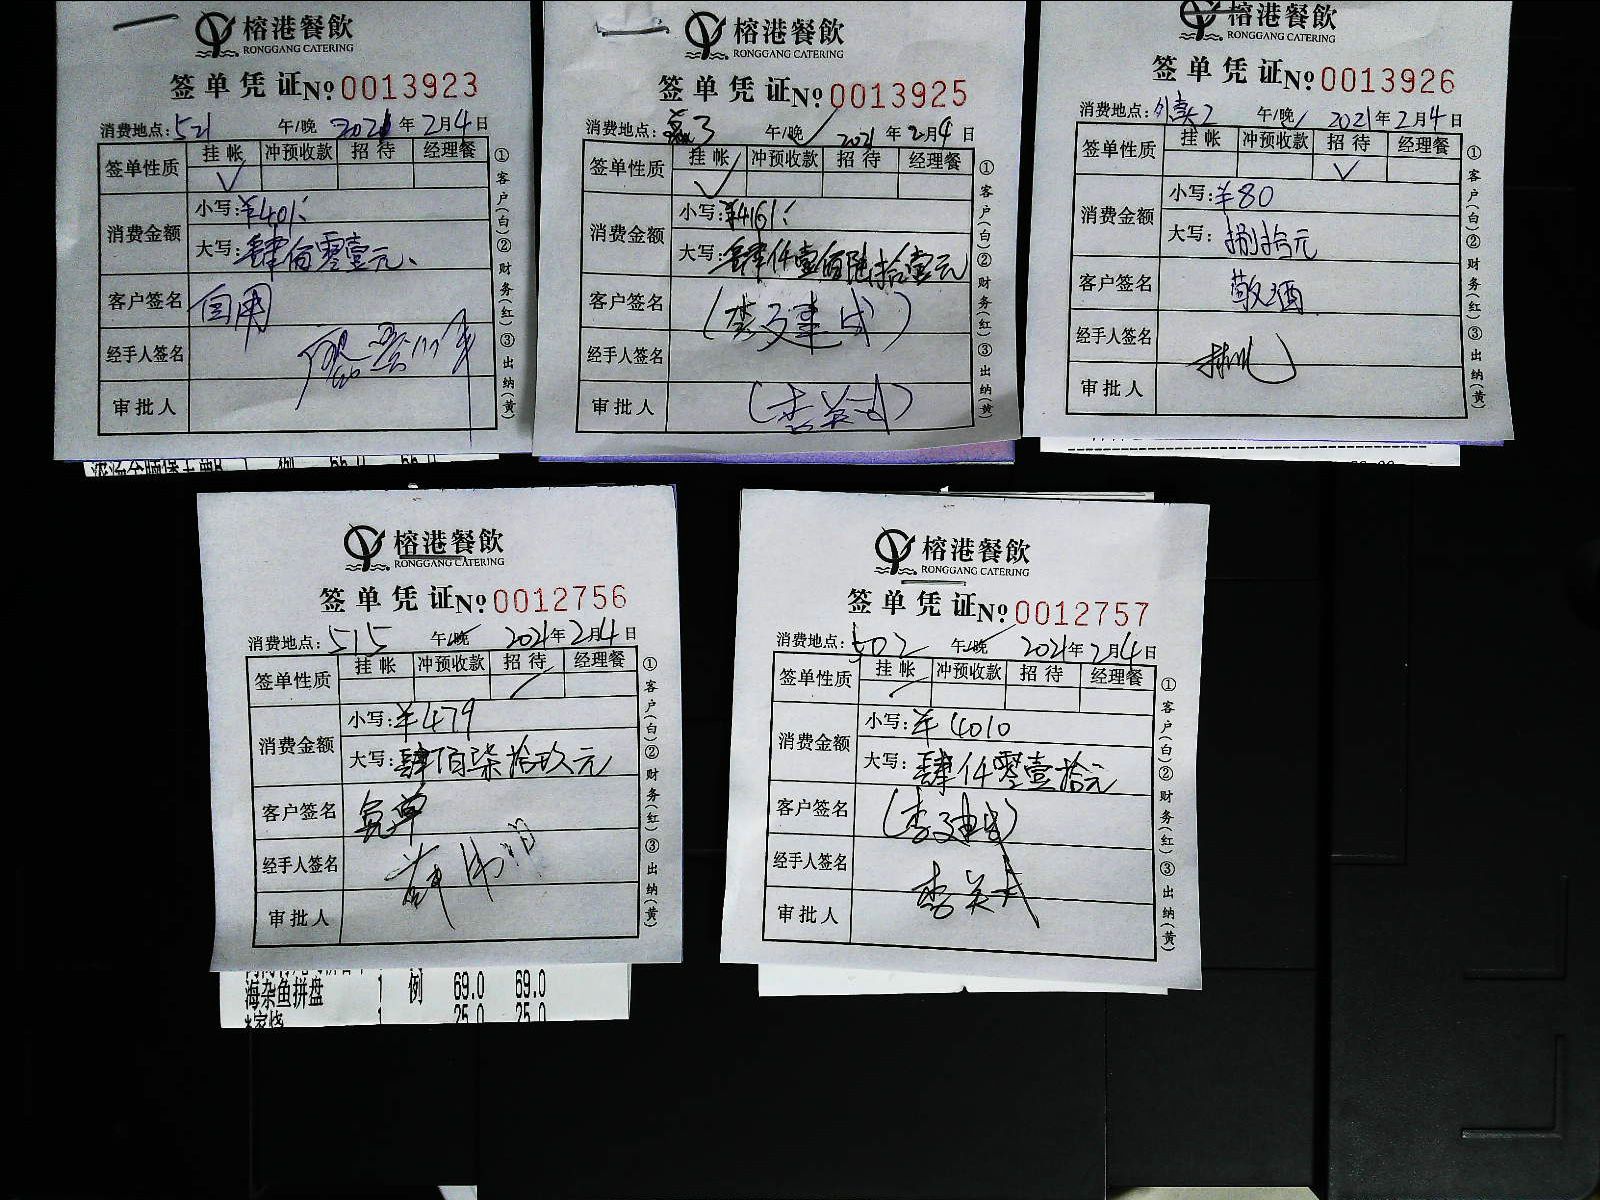 榕港餐飲
RONGGANG CATERING
签单凭证№0013923
消费地点:521 午/晚 2021年2月4日
签单性质 挂帐 冲预收款 招待 经理餐
消费金额 小写:¥401
大写:肆佰零壹元
客户签名 自用
经手人签名
审批人
①客户(白)②财务(红)③出纳(黄)
榕港餐飲
RONGGANG CATERING
签单凭证№0013925
消费地点: 午/晚 2021年2月4日
签单性质 挂帐 冲预收款 招待 经理餐
消费金额 小写:¥4161
大写:肆仟壹佰陆拾壹元
客户签名 (李建成)
经手人签名
审批人 (李英武)
①客户(白)②财务(红)③出纳(黄)
榕港餐飲
RONGGANG CATERING
签单凭证№0013926
消费地点:外卖2 午/晚 2021年2月4日
签单性质 挂帐 冲预收款 招待 经理餐
消费金额 小写:¥80
大写:捌拾元
客户签名 敬酒
经手人签名
审批人
①客户(白)②财务(红)③出纳(黄)
榕港餐飲
RONGGANG CATERING
签单凭证№0012756
消费地点:515 午/晚 2021年2月4日
签单性质 挂帐 冲预收款 招待 经理餐
消费金额 小写:¥479
大写:肆佰柒拾玖元
客户签名
经手人签名
审批人
①客户(白)②财务(红)③出纳(黄)
海杂鱼拼盘 1 例 69.0 69.0
1 25.0 25.0
榕港餐飲
RONGGANG CATERING
签单凭证№0012757
消费地点:502 午/晚 2021年2月4日
签单性质 挂帐 冲预收款 招待 经理餐
消费金额 小写:¥4010
大写:肆仟零壹拾元
客户签名 (李建成)
经手人签名 李英武
审批人
①客户(白)②财务(红)③出纳(黄)